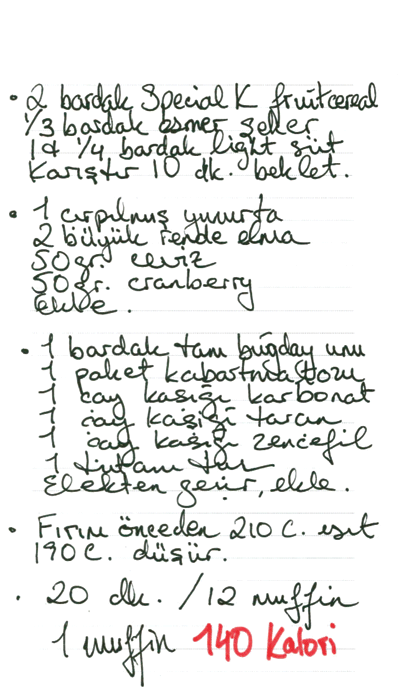 • 2 bardak Special K fruitcereal
1/3 bardak esmer şeker
1 & 1/4 bardak light süt
Karıştır 10 dk. beklet.
• 1 çırpılmış yumurta
2 büyük rende elma
50 gr. ceviz
50 gr. cranberry
ekle.
• 1 bardak tam buğday unu
1 paket kabartma tozu
1 çay kaşığı karbonat
1 çay kaşığı tarçın
1 çay kaşığı zencefil
1 tutam tuz
Elekten geçir, ekle.
• Fırını önceden 210 C. ısıt
190 C. düşür.
• 20 dk. / 12 muffin
1 muffin 140 Kalori